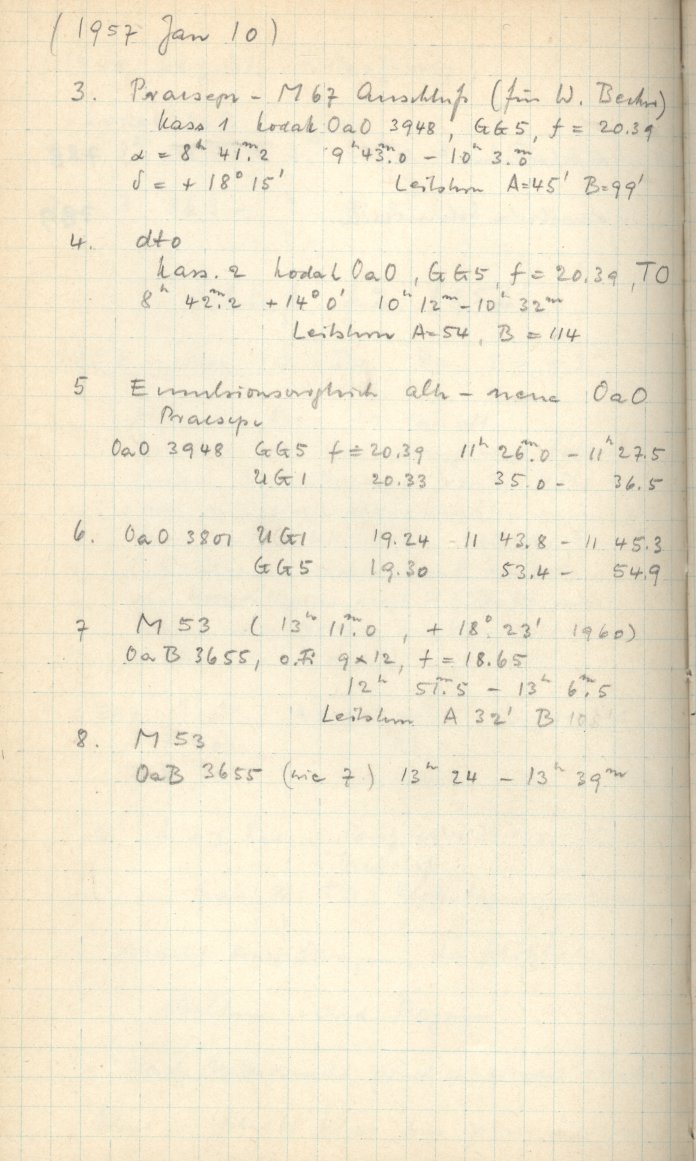 (1957 Jan 10)
3. Praesepe - M67 Anschluß (für W. Becker)
Kass 1 Kodak OaO 3948, GG5, f = 20.39
α = 8ʰ 41ᵐ.2 9ʰ 43ᵐ.0 - 10ʰ 3ᵐ.0
δ = + 18° 15' Leitstern A=45' B=99'
4. dto
Kass. 2 Kodak OaO, GG5, f = 20.39, TO
8ʰ 42ᵐ.2 +14° 0' 10ʰ 12ᵐ - 10ʰ 32ᵐ
Leitstern A=54, B = 114
5 Emulsionsvergleich alte - neue OaO
Praesepe
OaO 3948 GG5 f = 20.39 11ʰ 26ᵐ.0 - 11ʰ 27.5
UG1 20.33 35.0 - 36.5
6. OaO 3801 UG1 19.24 11 43.8 - 11 45.3
GG5 19.30 53.4 - 54.9
7 M 53 (13ʰ 11ᵐ.0, + 18°. 23' 1960)
OaB 3655, o.Fi 9×12, f = 18.65
12ʰ 51ᵐ.5 - 13ʰ 6ᵐ.5
Leitstern A 32' B
8. M 53
OaB 3655 (wie 7) 13ʰ 24 - 13ʰ 39ᵐ